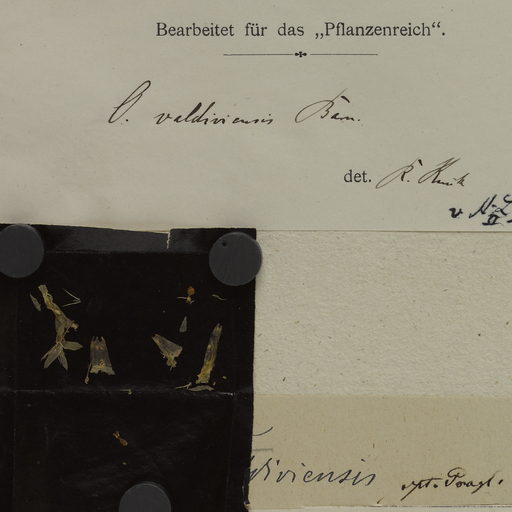 Bearbeitet für das „Pflanzenreich“.
O. valdiviensis Barn.
det. R. Knuth
v
II
diviensis